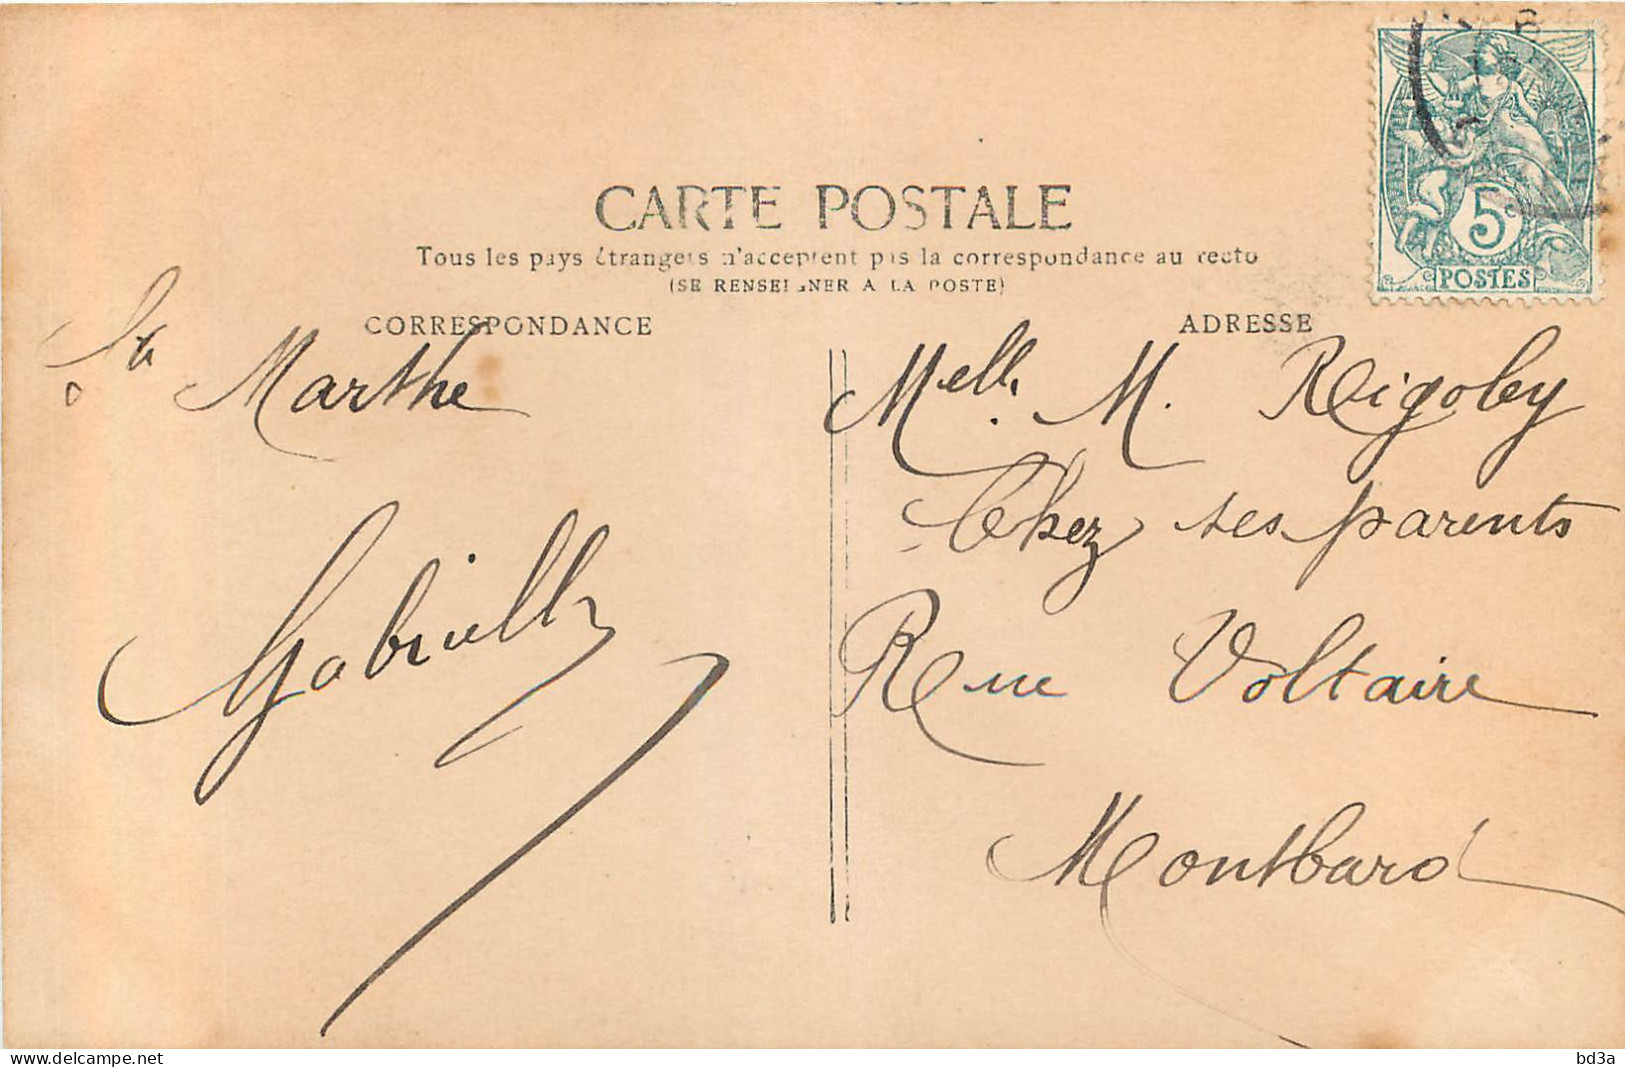 CARTE POSTALE
Tous les pays étrangers n'acceptent pas la correspondance au recto
(SE RENSEIGNER A LA POSTE)
CORRESPONDANCE
ADRESSE
5c
POSTES
Sta Marthe
Gabrielle
Melle. M. Rigoley
Chez ses parents
Rue Voltaire
Montbard
delcampe.net
bd3a